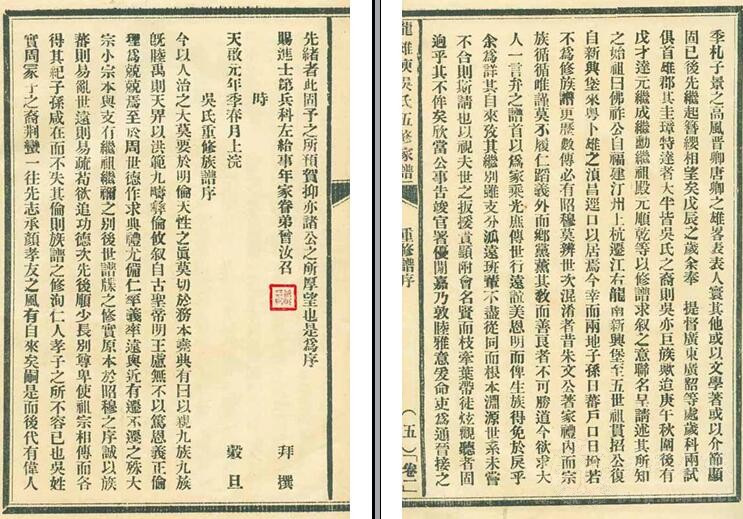 季札子景之高風晉卿唐卿之雄畧表表人寰其他或以文學著或以介節顯
固已後先繼起簪纓相望矣戊辰之歲余奉　提督廣東廣韶等處歲科兩試
俱首雄郡其圭璋特達者大半皆吳氏之裔則吳亦巨族歟迨庚午秋闈後有
戊才達元繼成繼勳繼祖殿元順乾等以修譜求叙之意聯名呈請述其所知
之始祖曰佛祚公自福建汀州上杭遷江右龍南新興堡至五世祖貫招公復
自新興堡來粵卜雄之滇昌逕口以居焉今幸而兩地子孫日蕃戶口日增若
不爲修族譜更歷數傳必有昭穆莫辨世次混淆者昔朱文公著家禮內而宗
族循循唯謹莫不履仁蹈義外而鄉黨薰其教而善良者不可勝道今欲求大
人一言弁之譜首以爲家乘光庶傳世行遠誼美恩明而俾生族得免於戾乎
余爲詳其自來攷其繼別雖支分派遠班輩不盡從同而根本淵源世系未嘗
不合則斯譜也以視夫世之扳援貴顯附會名賢而枝牽葉帶徒炫觀聽者固
逈乎其不侔矣欣當公事告竣官署優閒嘉乃敦睦雅意爰命吏爲通晉接之
龍雄庾吳氏五修家譜
重修譜序
（五）（卷二）
先緒者此固予之所預賀抑亦諸公之所厚望也是爲序
賜進士第兵科左給事年家眷弟曾汝召　拜撰
時
天啟元年季春月上浣　穀旦
吳氏重修族譜序
今以人治之大莫要於明倫天性之眞莫切於務本堯典有曰以親九族九族
旣睦禹則天畀以洪範九疇彝倫攸叙自古聖帝明王慮無不以篤恩義正倫
理爲兢兢焉至於周世德作求典禮尤備仁率義率遠與近有遷不遷之殊大
宗小宗本與支有繼祖繼禰之別後世譜牒之修實原本於昭穆之序誠以族
蕃則易亂世遠則易疏苟欲追功德次先後順少長別尊卑使祖宗相傳而各
得其紀子孫咸在而不失其倫則族譜之修洵仁人孝子之所不容已也吳姓
實周冢子之裔荆蠻一往先志承顏孝友之風有自來矣嗣是而後代有偉人